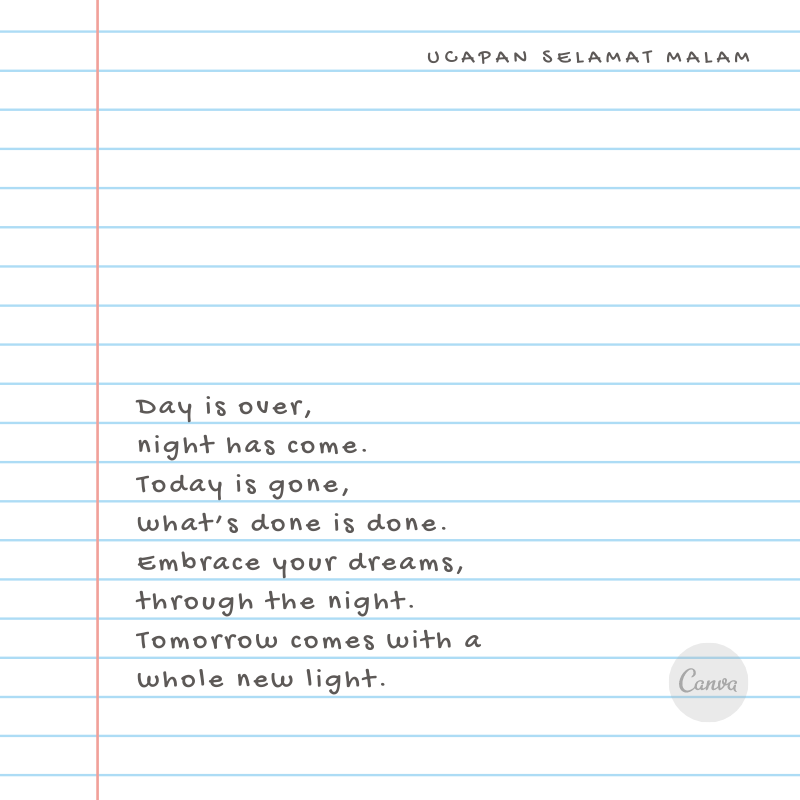 UCAPAN SELAMAT MALAM
Day is over,
night has come.
Today is gone,
what's done is done.
Embrace your dreams,
through the night.
Tomorrow comes with a
whole new light.
Canva